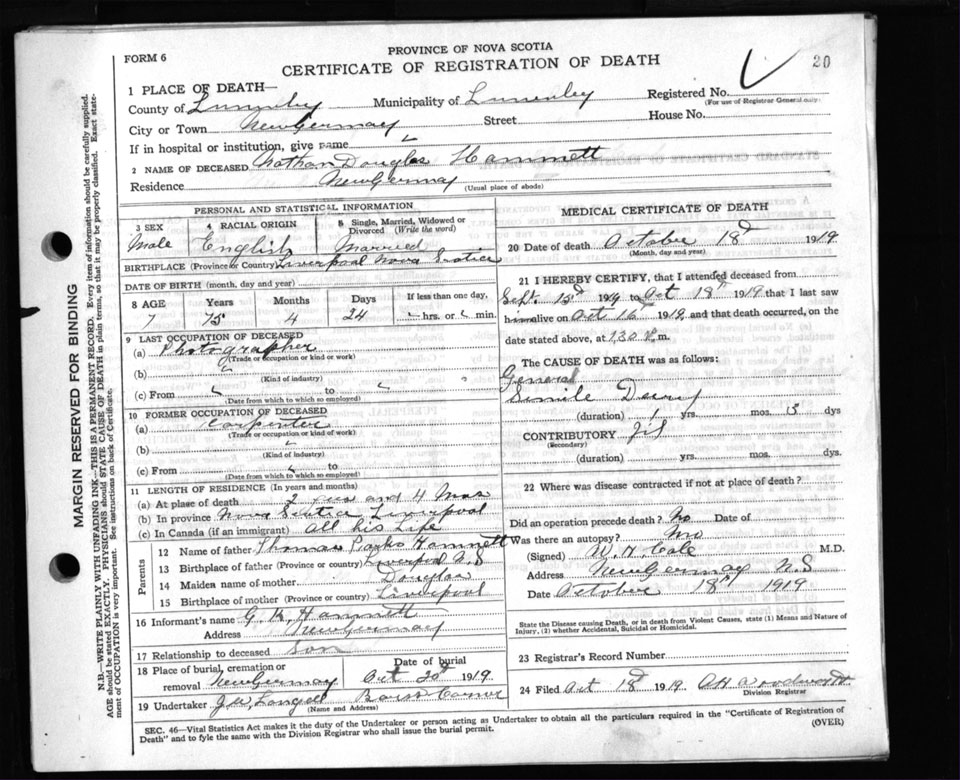 PROVINCE OF NOVA SCOTIA
FORM 6
CERTIFICATE OF REGISTRATION OF DEATH
20
1 PLACE OF DEATH—
County of Lunenburg Municipality of Lunenburg Registered No.
(For use of Registrar General only)
City or Town New Germany Street House No.
If in hospital or institution, give name
2 NAME OF DECEASED Nathan Douglas Hammett
Residence New Germany (Usual place of abode)
PERSONAL AND STATISTICAL INFORMATION
3 SEX
Male
4 RACIAL ORIGIN
English
5 Single, Married, Widowed or Divorced (Write the word)
Married
BIRTHPLACE (Province or Country) Liverpool Nova Scotia
DATE OF BIRTH (month, day and year)
8 AGE Years Months Days If less than one day,
7 75 4 24 hrs. or min.
9 LAST OCCUPATION OF DECEASED
(a) Photographer
(Trade or occupation or kind of work)
(b)
(Kind of industry)
(c) From to
(Date from which to which so employed)
10 FORMER OCCUPATION OF DECEASED
Carpenter
(Trade or occupation or kind of work)
(b)
(Kind of industry)
(c) From
(Date from which to which so employed)
11 LENGTH OF RESIDENCE (In years and months)
(a) At place of death 2 and 4 Mos
(b) In province Nova Scotia Liverpool
(c) In Canada (if an immigrant) All his Life
Parents
12 Name of father Thomas Hammett
13 Birthplace of father (Province or country) Liverpool N.S
14 Maiden name of mother Douglas
15 Birthplace of mother (Province or country) Liverpool
16 Informant's name G. K. Hammett
Address New Germany
17 Relationship to deceased Son
18 Place of burial, cremation or removal New Germany Date of burial Oct 20 1919
19 Undertaker J W Corner
(Name and Address)
MEDICAL CERTIFICATE OF DEATH
20 Date of death October 18 1919
(Month, day and year)
21 I HEREBY CERTIFY, that I attended deceased from
Sept. 15 1919 to Oct 18th 1919 that I last saw
him alive on Oct 16 1919, and that death occurred, on the
date stated above, at 1.30 m.
The CAUSE OF DEATH was as follows:
General
(duration) 1 yrs. mos. 15 dys
CONTRIBUTORY
(Secondary)
(duration) yrs. mos. dys.
22 Where was disease contracted if not at place of death?
Did an operation precede death? No Date of
Was there an autopsy? No
(Signed) W. H Cole M.D.
Address New Germany N.S
Date October 18th 1919
State the Disease causing Death, or in death from Violent Causes, state (1) Means and Nature of
Injury, (2) whether Accidental, Suicidal or Homicidal.
23 Registrar's Record Number
24 Filed Oct 18 1919. Woodworth
Division Registrar
SEC. 46—Vital Statistics Act makes it the duty of the Undertaker or person acting as Undertaker to obtain all the particulars required in the "Certificate of Registration of
Death" and to fyle the same with the Division Registrar who shall issue the burial permit.
(OVER)
MARGIN RESERVED FOR BINDING
N.B.—WRITE PLAINLY WITH UNFADING INK—THIS IS A PERMANENT RECORD. Every item of information should be carefully supplied.
AGE should be stated EXACTLY. PHYSICIANS should STATE CAUSE OF DEATH in plain terms, so that it may be properly classified. Exact statement of OCCUPATION is very important. See instructions on back of Certificate.